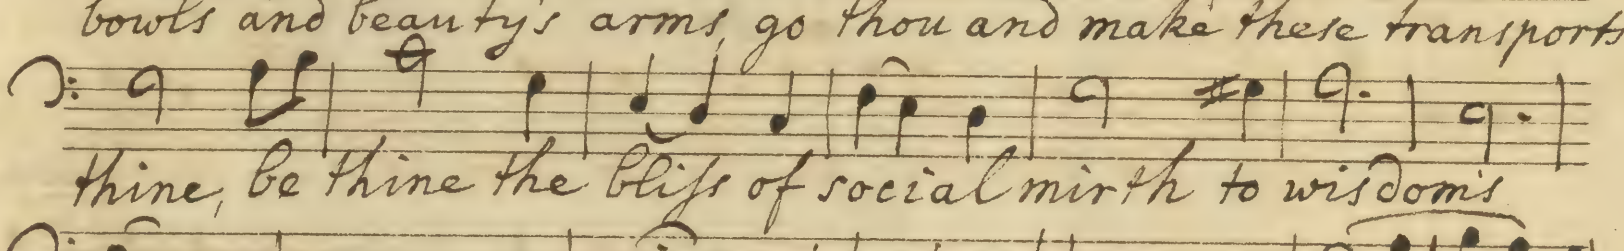 bowls and beauty's arms, go thou and make these transports
thine, be thine the bliſs of social mirth to wisdom's